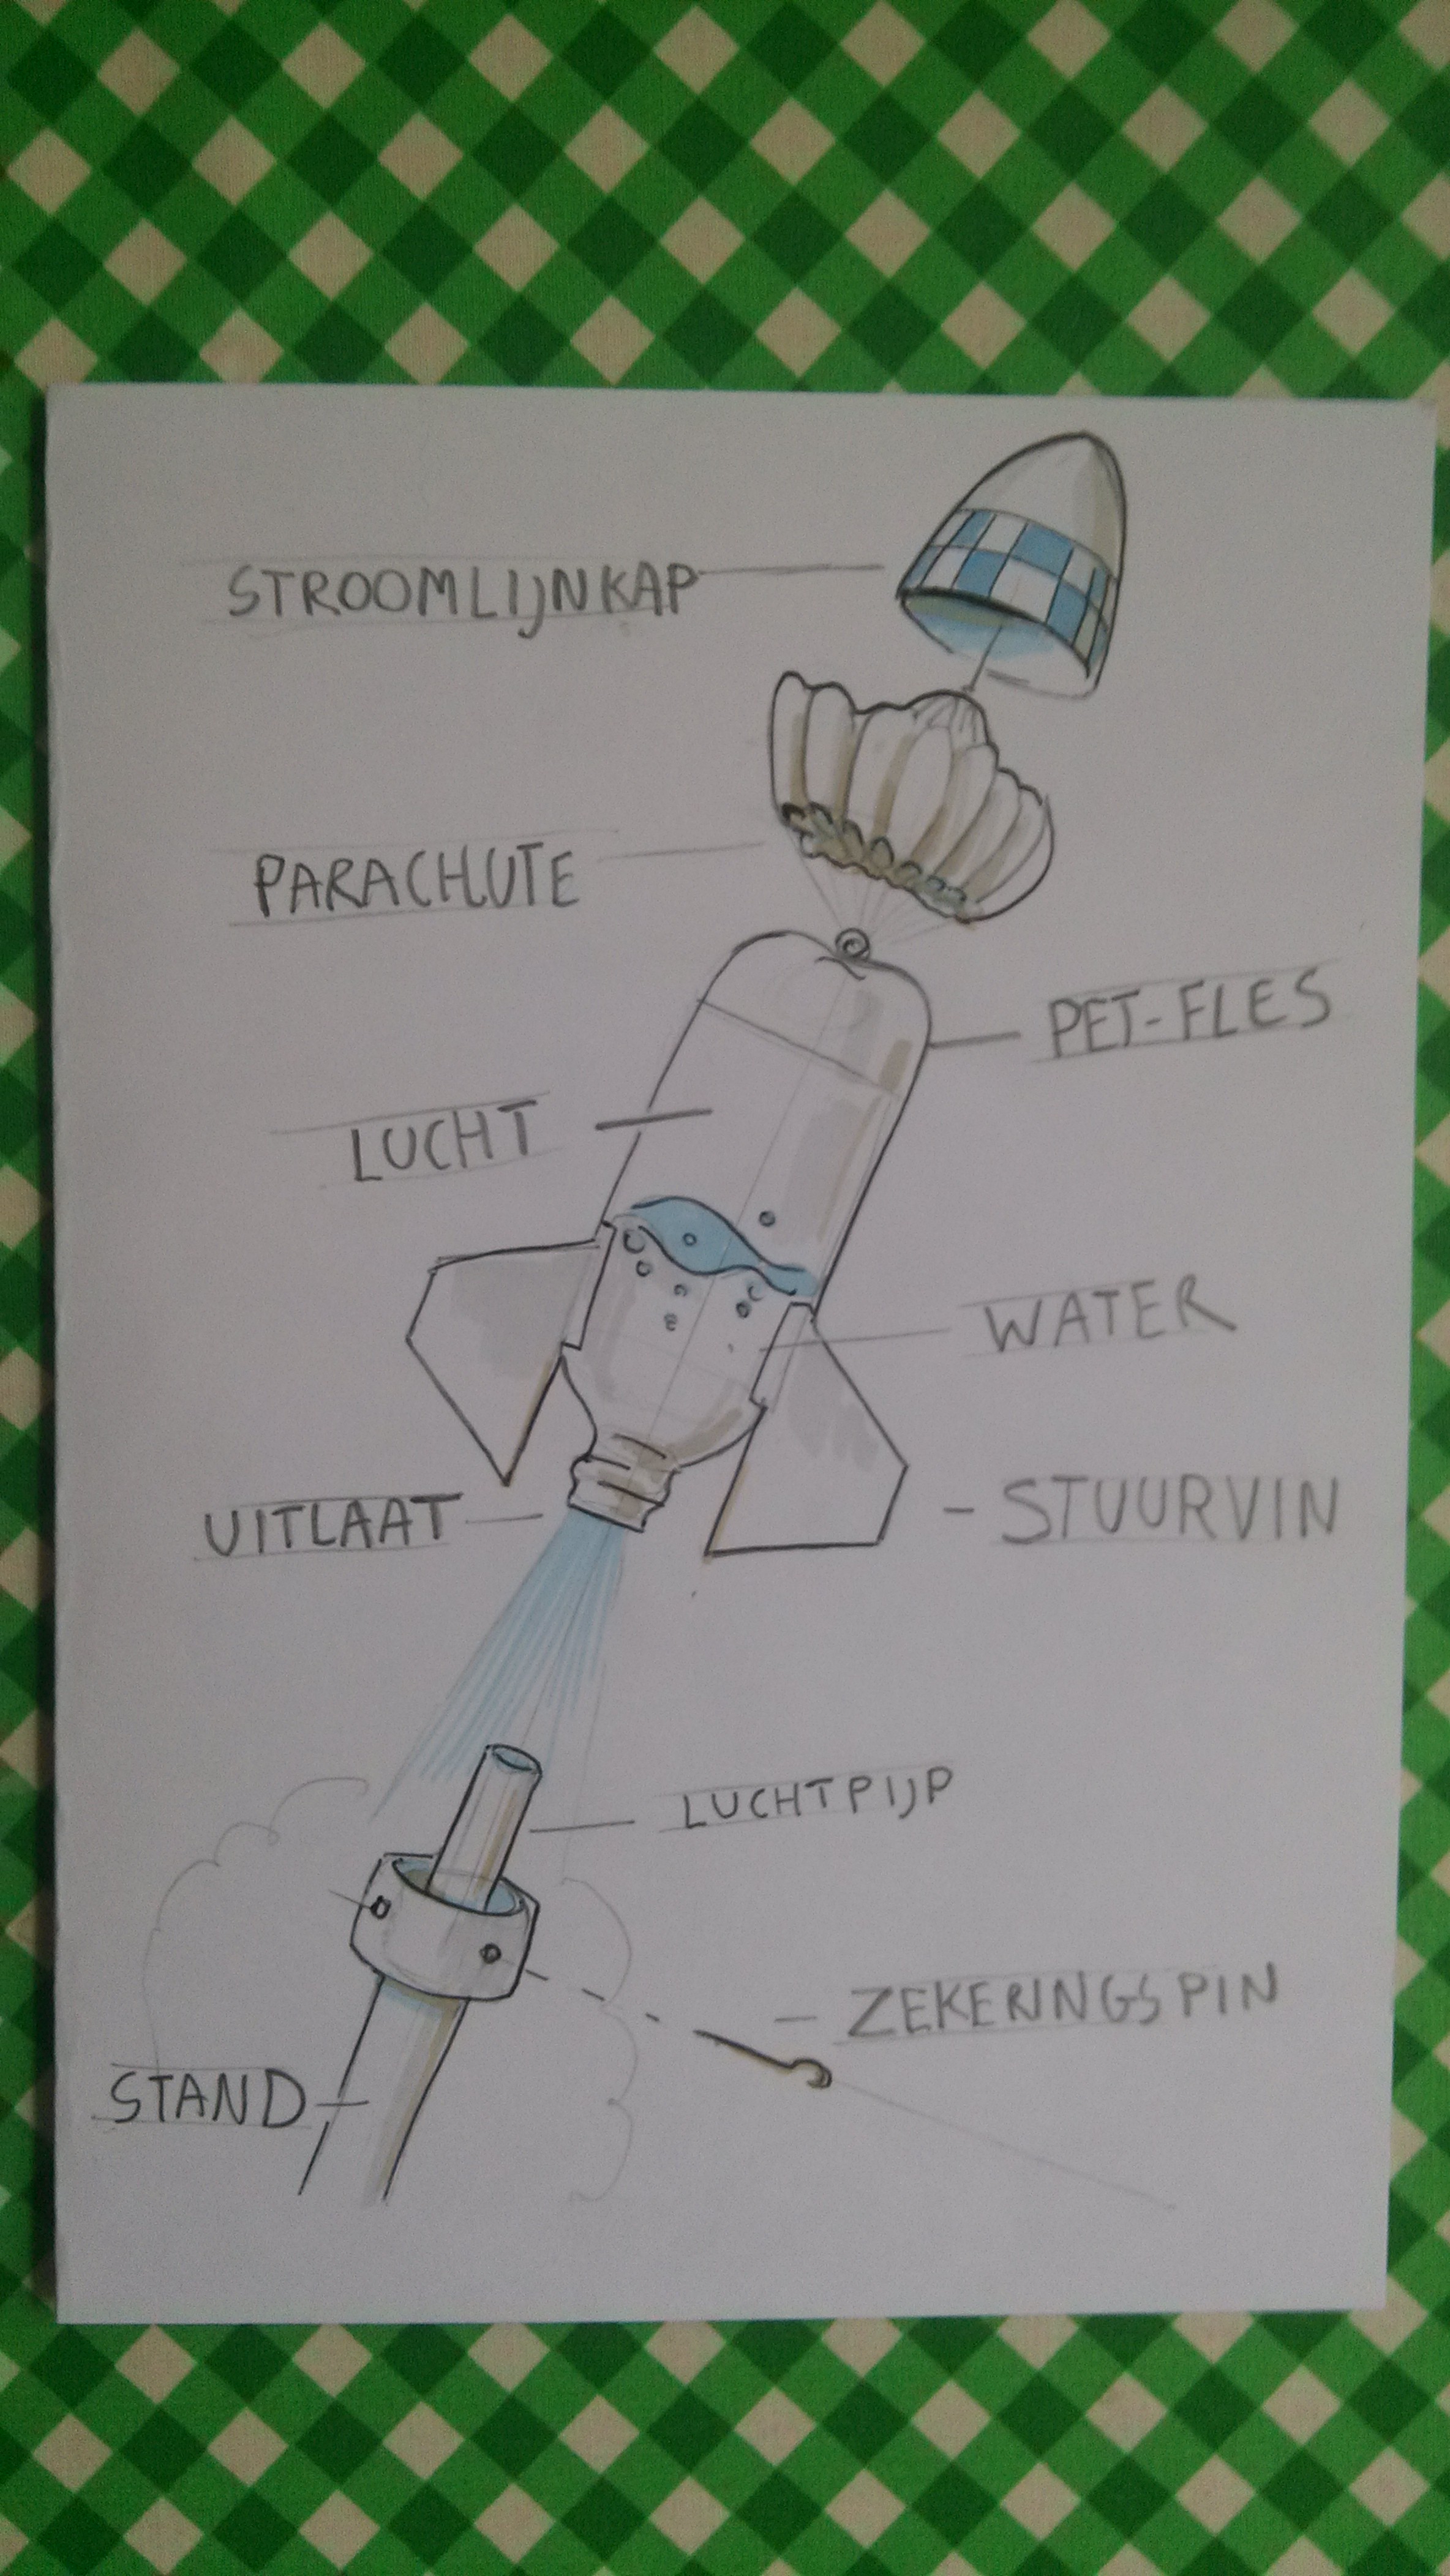 STROOMLIJNKAP
PARACHUTE
PET-FLES
LUCHT
WATER
UITLAAT
STUURVIN
LUCHTPIJP
ZEKERINGSPIN
STAND